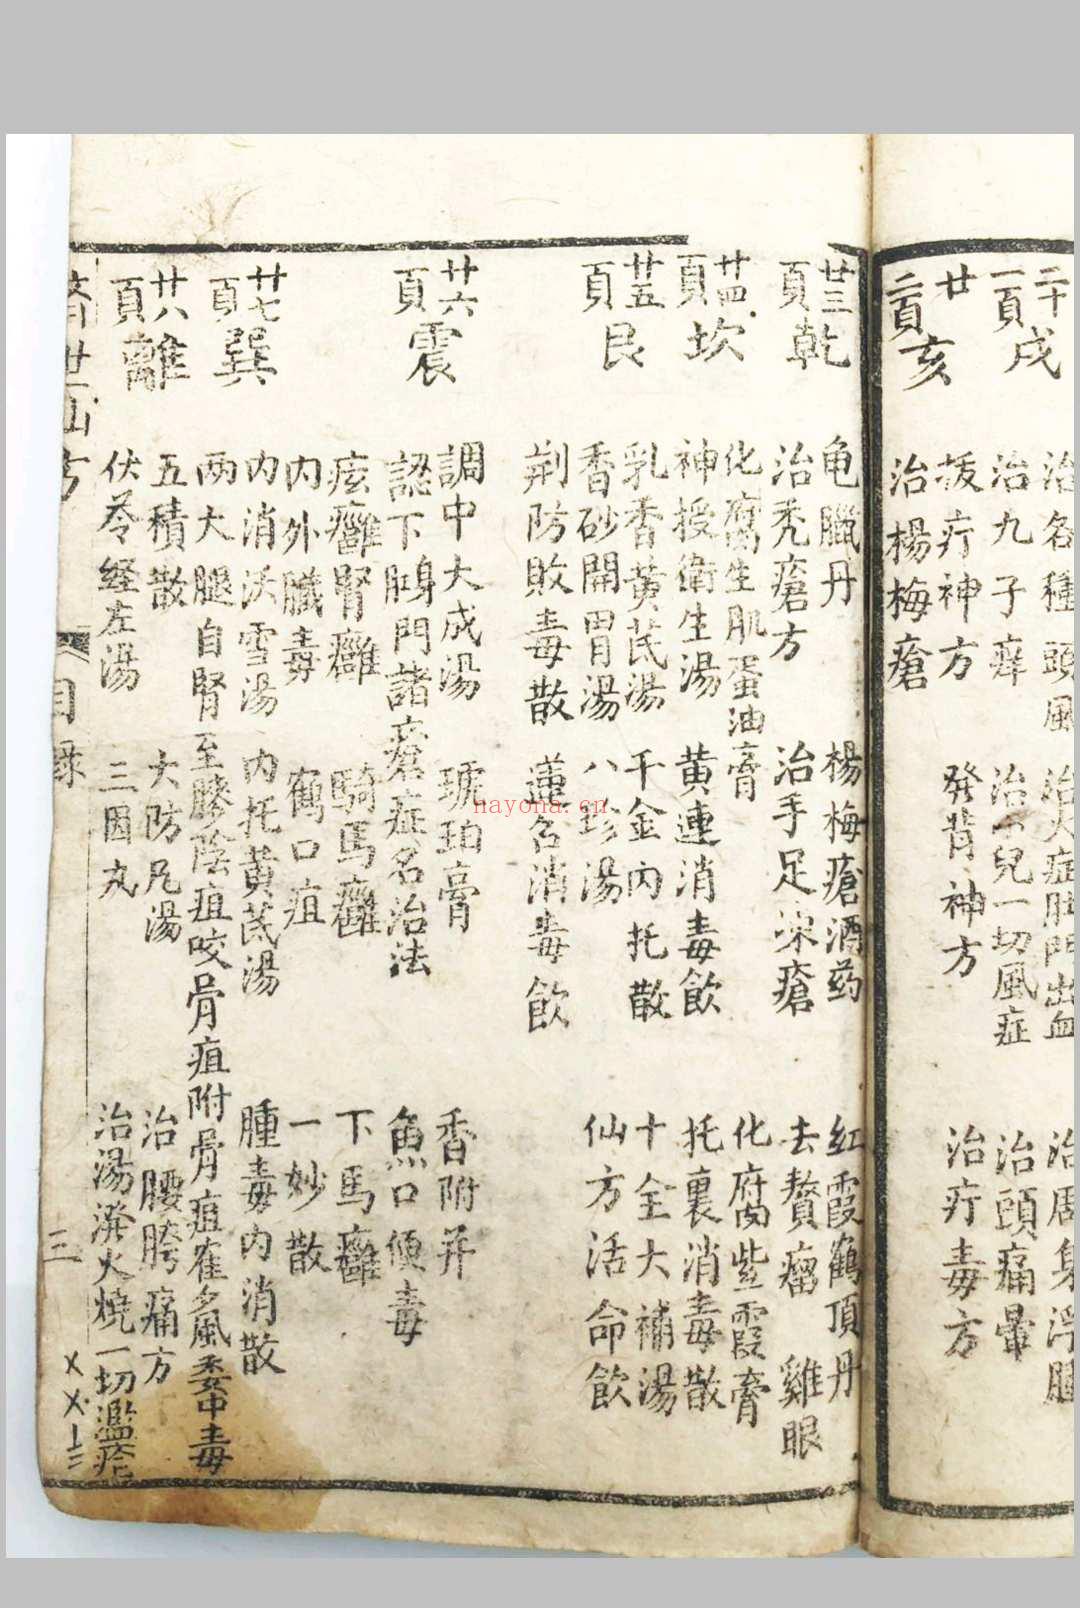 二十一頁戌
治各種頭風 治火症肛門出血 治周身浮腫
治九子癢 治小兒一切風症 治頭痛暈
廿二頁亥
拔疔神方 發背神方 治疔毒方
治楊梅瘡
廿三頁乾
龟臘丹 楊梅瘡酒药 紅霞鶴頂丹
治秃瘡方 治手足凍瘡 去贅瘤 雞眼
化腐生肌蛋油膏 化腐紫霞膏
廿四頁坎
神授衛生湯 黄連消毒飲 托裏消毒散
廿五頁艮
乳香黄芪湯 千金内托散 十全大補湯
香砂開胃湯 八珍湯 仙方活命飲
荆防敗毒散 蓮名消毒飲
廿六頁震
調中大成湯 琥珀膏 香附并
認下身門諸瘡症名治法 魚口便毒
痃癰腎癰 騎馬癰 下馬癰
内外臟毒 鶴口疽 一妙散
廿七頁巽
内消沃雪湯 内托黄芪湯 腫毒内消散
两大腿自腎至膝陰疽咬骨疽附骨疽雀名風委中毒
廿八頁離
五積散 大防凡湯 治腰胯痛方
伏苓經左湯 三因丸 治湯潑火燒一切濫瘡
濟世仙方 目錄 三
hayona.cn